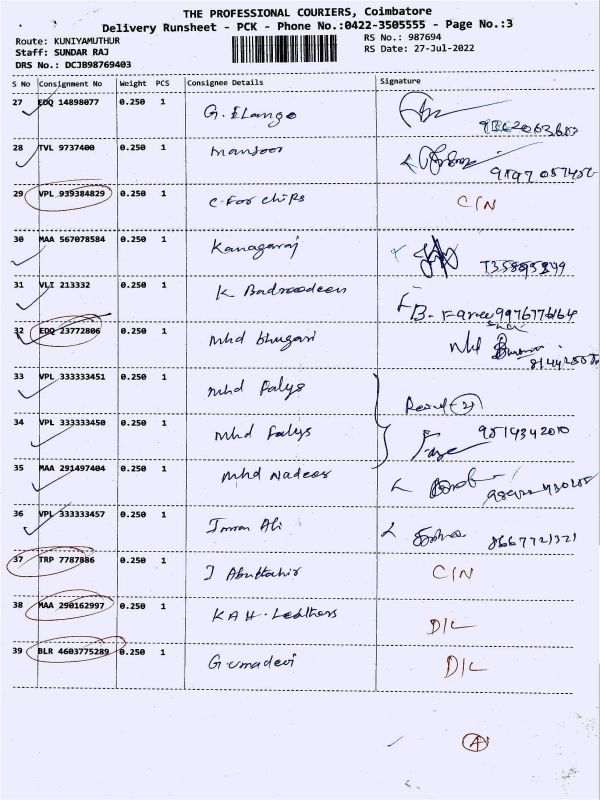 THE PROFESSIONAL COURIERS, Coimbatore
Delivery Runsheet - PCK - Phone No.:0422-3505555 - Page No.:3
Route: KUNIYAMUTHUR
RS No.: 987694
Staff: SUNDAR RAJ
RS Date: 27-Jul-2022
DRS No.: DCJB98769403
S No Consignment No Weight PCS Consignee Details Signature
27 EDQ 14898077 0.250 1 G. Elango
28 TVL 9737400 0.250 1 Mansoor
29 VPL 939384829 0.250 1 C. For Chips C/N
30 MAA 567078584 0.250 1 Kanagaraj
31 VLI 213332 0.250 1 K Badroodeen
32 EDQ 23772806 0.250 1 Mhd Bhugari
33 VPL 333333451 0.250 1 Mhd Falys
34 VPL 333333450 0.250 1 Mhd Falys 9514342010
35 MAA 291497404 0.250 1 Mhd Nadeer
36 VPL 333333457 0.250 1 Imran Ali 8667721321
37 TRP 7787886 0.250 1 J Abuttahir C/N
38 MAA 290162997 0.250 1 KAH. Leathers D/L
39 BLR 4603775289 0.250 1 G. Umadevi D/L
A